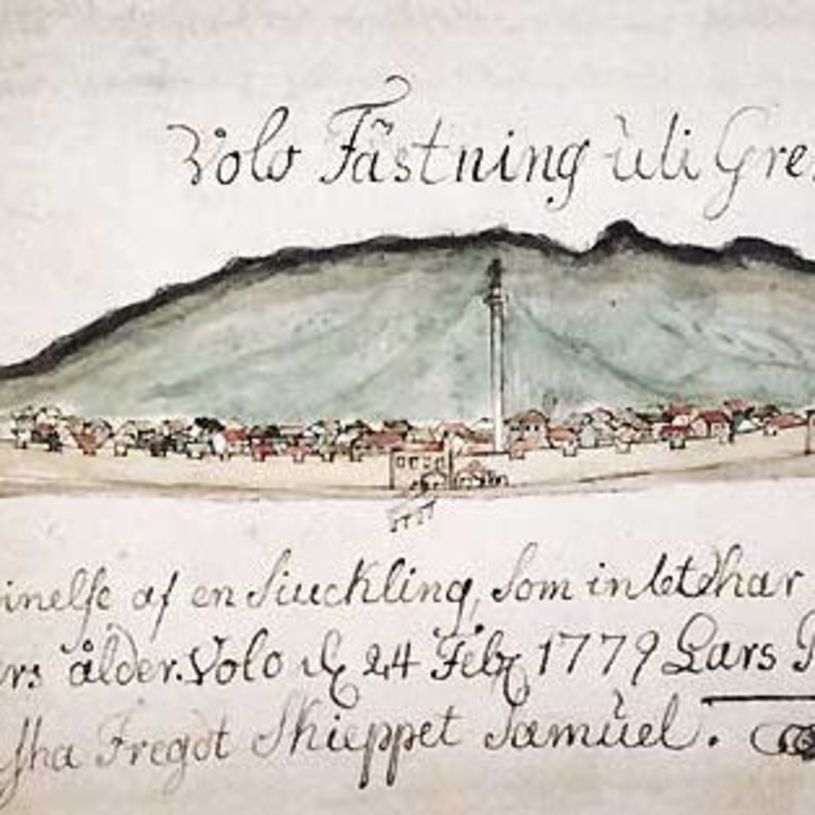 Volo Fästning üti Gre
inelse af en Siuckling, som intet har
rs ålder. Volo d 24 Feb 1779 Lars
ska Fregat Skieppet Samüel.